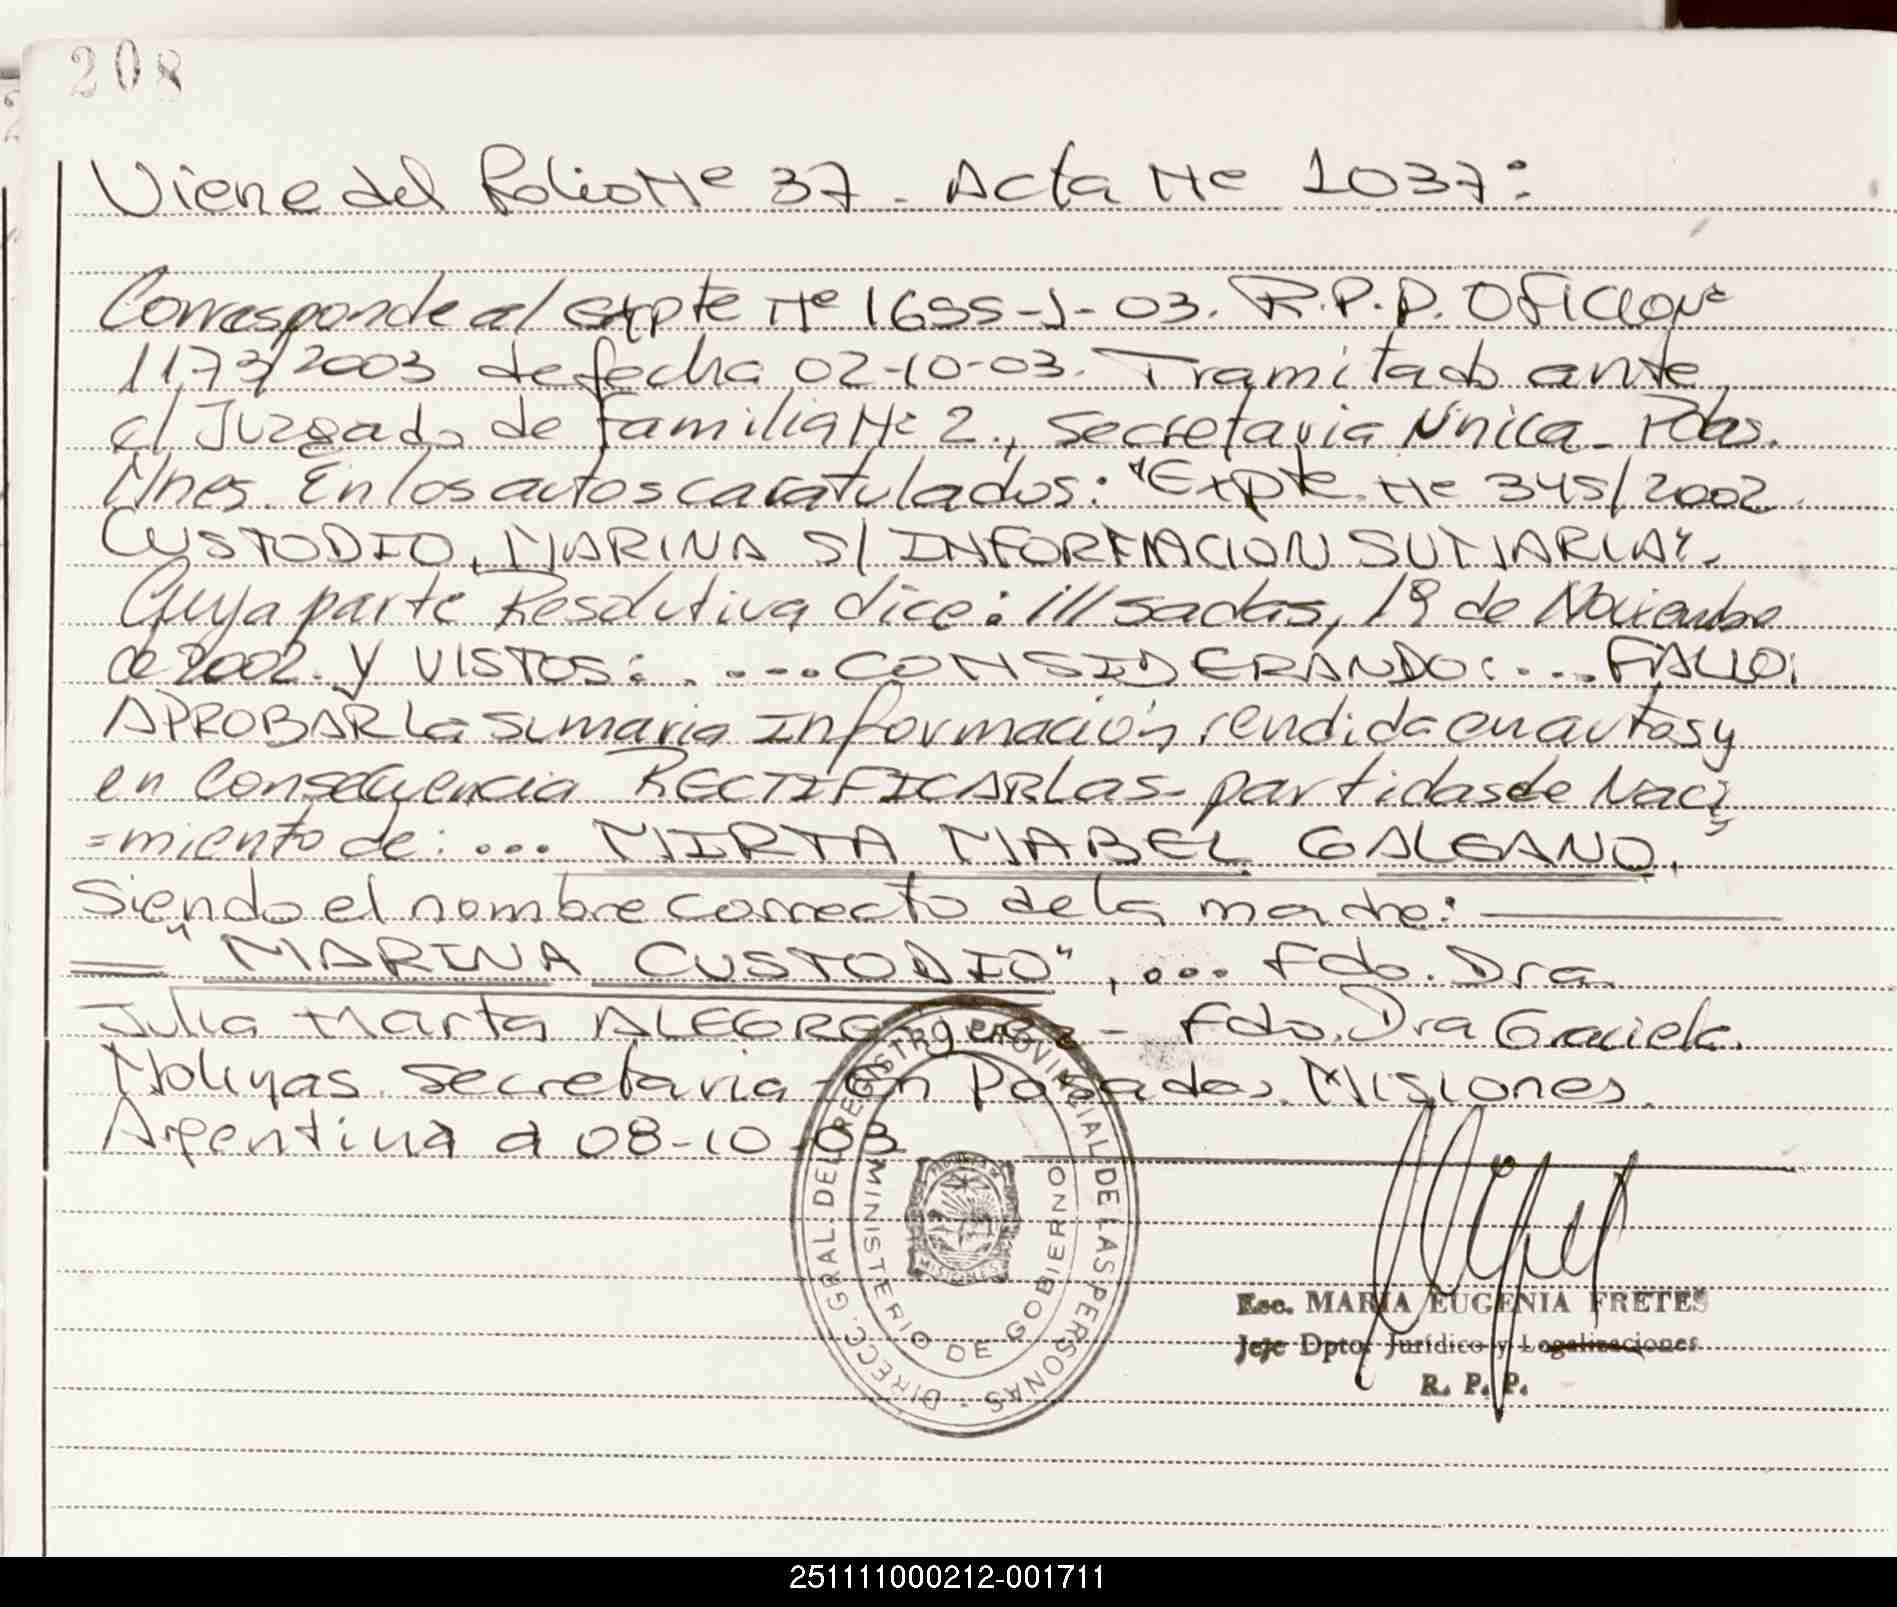 208
Viene del folio Nº 37. Acta Nº 1037:
Corresponde al expte Nº 1655-J-03. R.P.P. Oficio Nº
1173/2003 de fecha 02-10-03. Tramitado ante
el Juzgado de familia Nº 2., Secretaria Unica. Pdas.
Mnes. En los autos caratulados: "Expte. Nº 345/2002
CUSTODIO, MARINA S/ INFORMACION SUMARIA".
Cuya parte Resolutiva dice: ///sadas, 19 de Noviembre
de 2002. y VISTOS: ....CONSIDERANDO:....FALLO:
APROBAR la sumaria Información, rendida en autos y
en Consecuencia RECTIFICAR las partidas de Naci
=miento de: ... MIRTA MABEL GALEANO,
Siendo el nombre correcto de la madre:
"MARINA CUSTODIO", ... Fdo. Dra.
Julia Marta ALEGRE, - Fdo. Dra Graciela
Molinas. Secretaria - En Posadas. Misiones.
Argentina a 08-10-03
DIRECC. GRAL. DEL REGISTRO PROVINCIAL DE LAS PERSONAS -
MINISTERIO DE GOBIERNO
MISIONES
Esc. MARIA EUGENIA FRETES
Jefe Dpto. Jurídico y Legalizaciones
R. P. P.
251111000212-001711